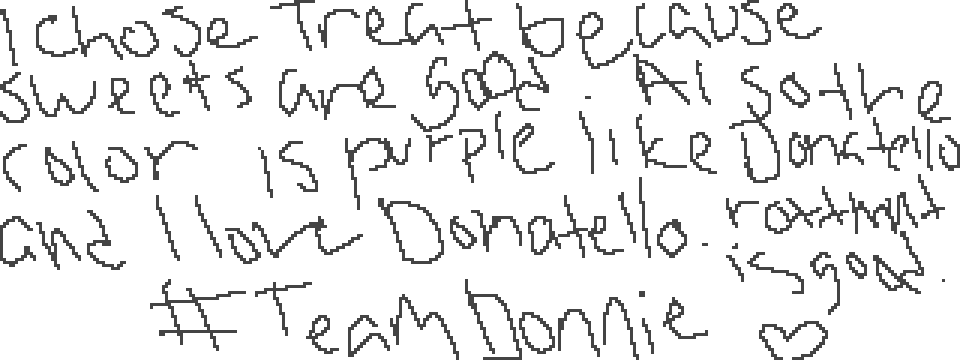 I chose Treat because
sweets are good. Also the
color is purple like Donatello
and I love Donatello. rottmnt
is good.
#TeamDonnie ♡